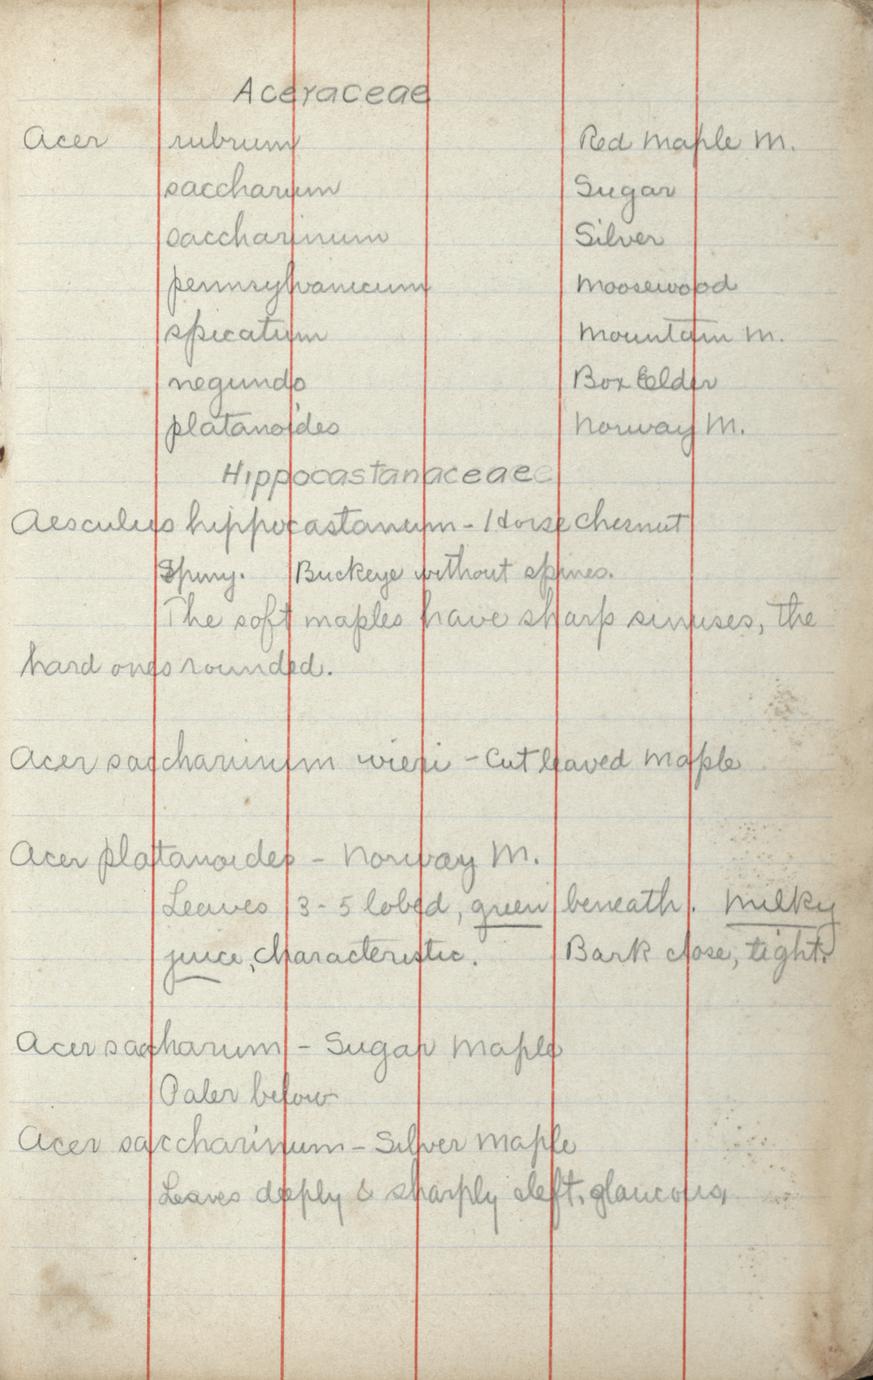 Aceraceae
Acer rubrum Red Maple M.
saccharum Sugar
saccharinum Silver
pennsylvanicum Moosewood
spicatum Mountain M.
negundo Box Elder
platanoides Norway M.
Hippocastanaceae
Aesculus hippocastanum - Horse chesnut
Spiny. Buckeye without spines.
The soft maples have sharp sinuses, the
hard ones rounded.
Acer saccharinum wieri - Cut leaved Maple
Acer platanoides - Norway M.
Leaves 3-5 lobed, green beneath. Milky
juice, characteristic. Bark close, tight.
Acer saccharum - Sugar Maple
Paler below
Acer saccharinum - Silver Maple
Leaves deeply & sharply cleft, glaucous,